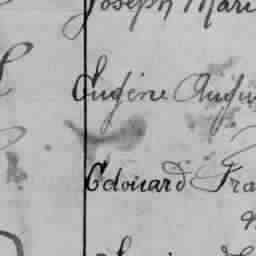 Joseph Mari
Eugène Augu
Edouard Fra